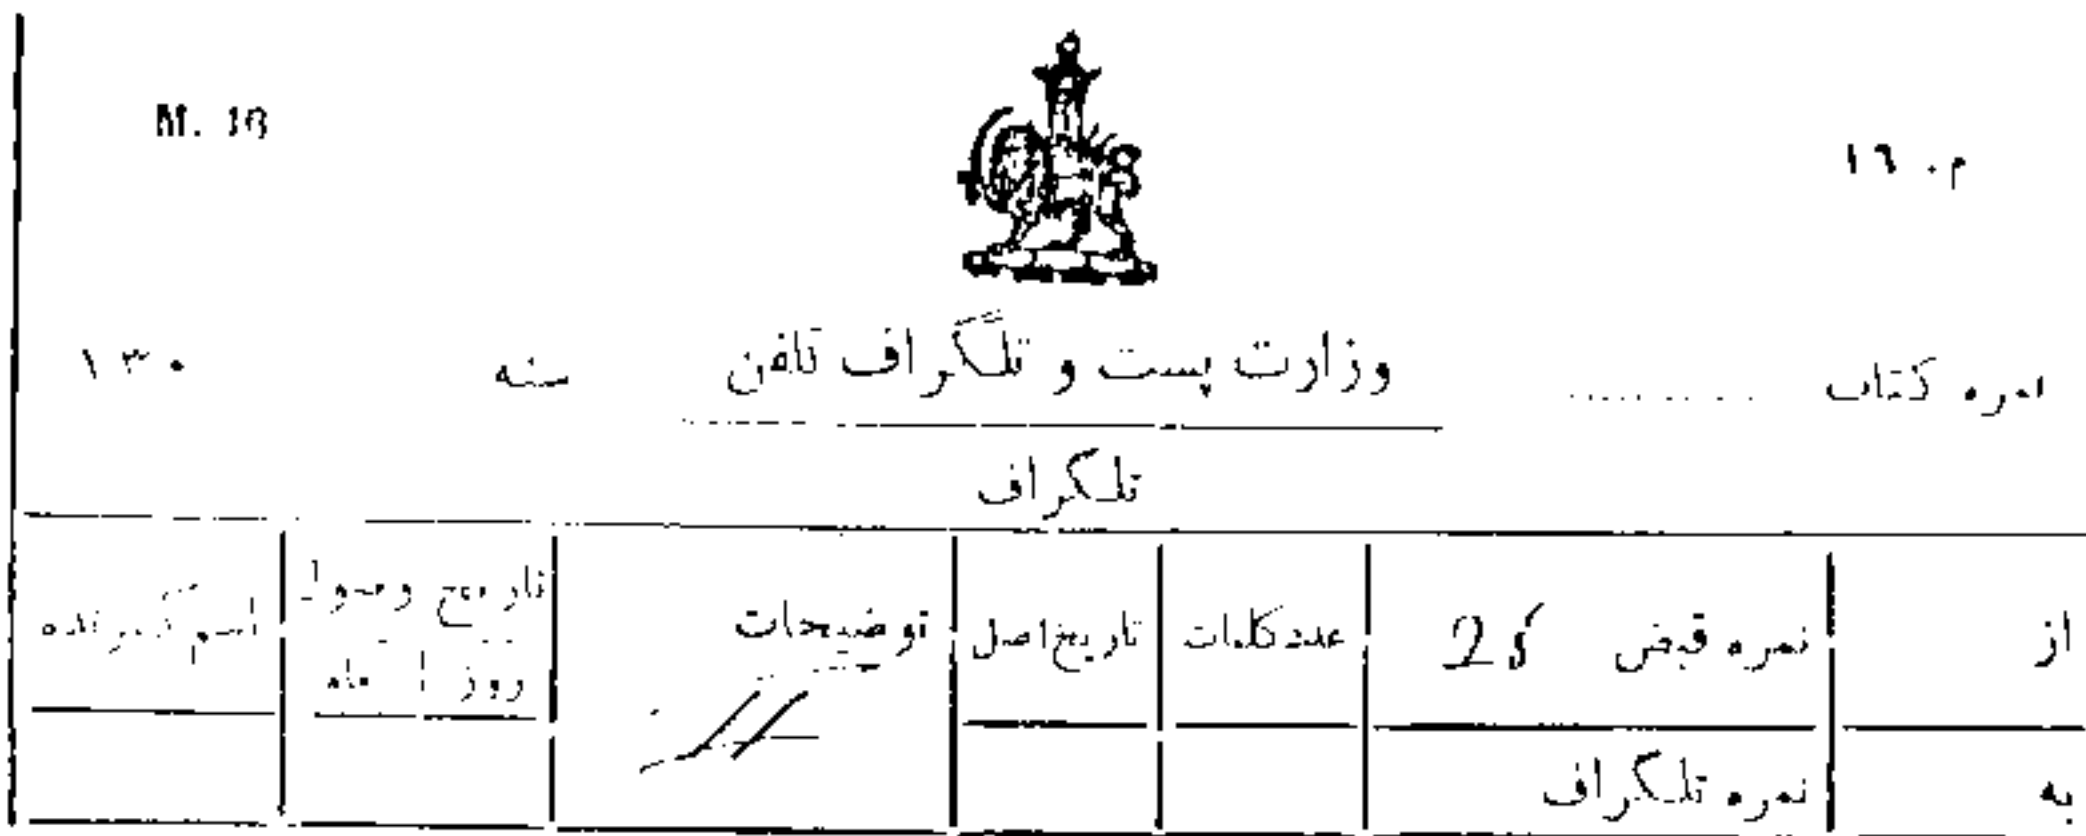 م. ١٦
M. 16
نمره کتاب .......... وزارت پست و تلگراف تلفن سنه ١٣٠
تلگراف
از نمره قبض 25 عدد کلمات تاریخ اصل توضیحات تاریخ وصول اسم گیرنده
روز ماه
به نمره تلگراف